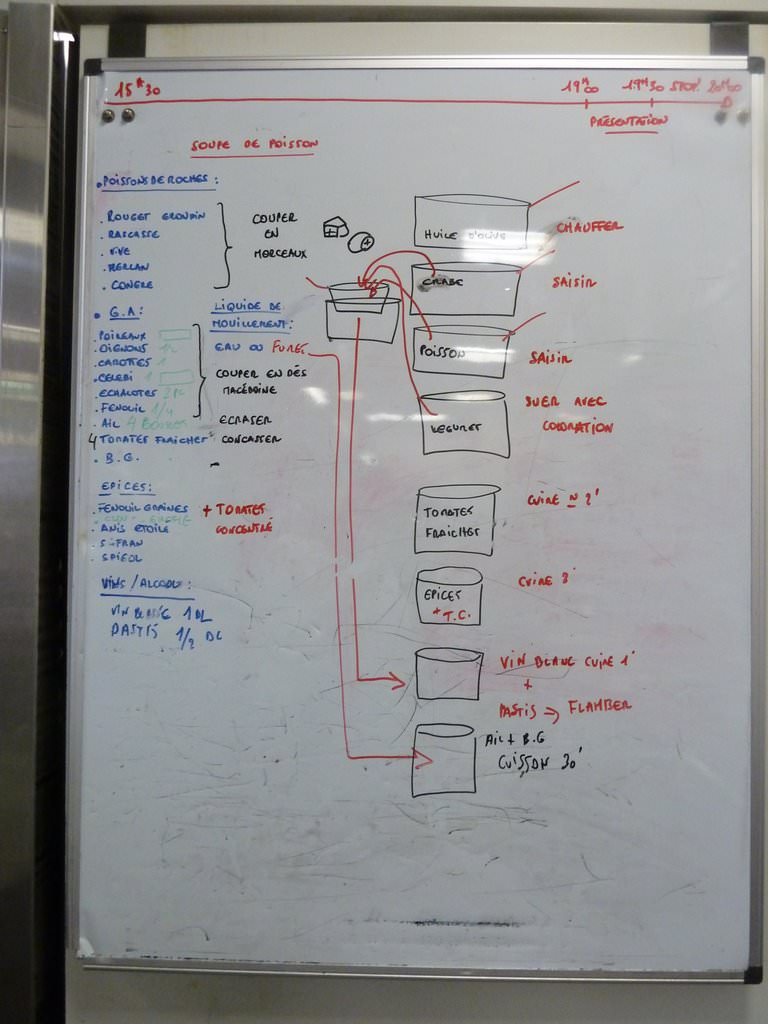 15H30
19H00
19H30
STOP! 20H00
PRÉSENTATION
SOUPE DE POISSON
. POISSONS DE ROCHES :
. ROUGET GRONDIN
. RASCASSE
. VIVE
. MERLAN
. CONGRE
COUPER
EN
MORCEAUX
. G.A :
. POIREAUX
. OIGNONS
. CAROTTES 1
. CELERI 1
. ECHALOTES
. FENOUIL 1/4
. AIL
4 TOMATES FRAICHES
. B.G.
COUPER EN DÉS
MACÉDOINE
ECRASER
CONCASSER
LIQUIDE DE
MOUILLEMENT :
EAU OU FUMET
EPICES :
. FENOUIL GRAINES
. ANIS ETOILE
. SAFRAN
+ TOMATES
CONCENTRÉ
VINS / ALCOOL :
VIN BLANC 1 DL
PASTIS 1/2 DL
HUILE D'OLIVE
CHAUFFER
CRABE
SAISIR
POISSON
SAISIR
LEGUMES
SUER AVEC
COLORATION
TOMATES
FRAICHES
CUIRE N 2'
EPICES
+ T.C.
CUIRE 3'
VIN BLANC CUIRE 1'
+
PASTIS => FLAMBER
AIL + B.G
CUISSON 30'